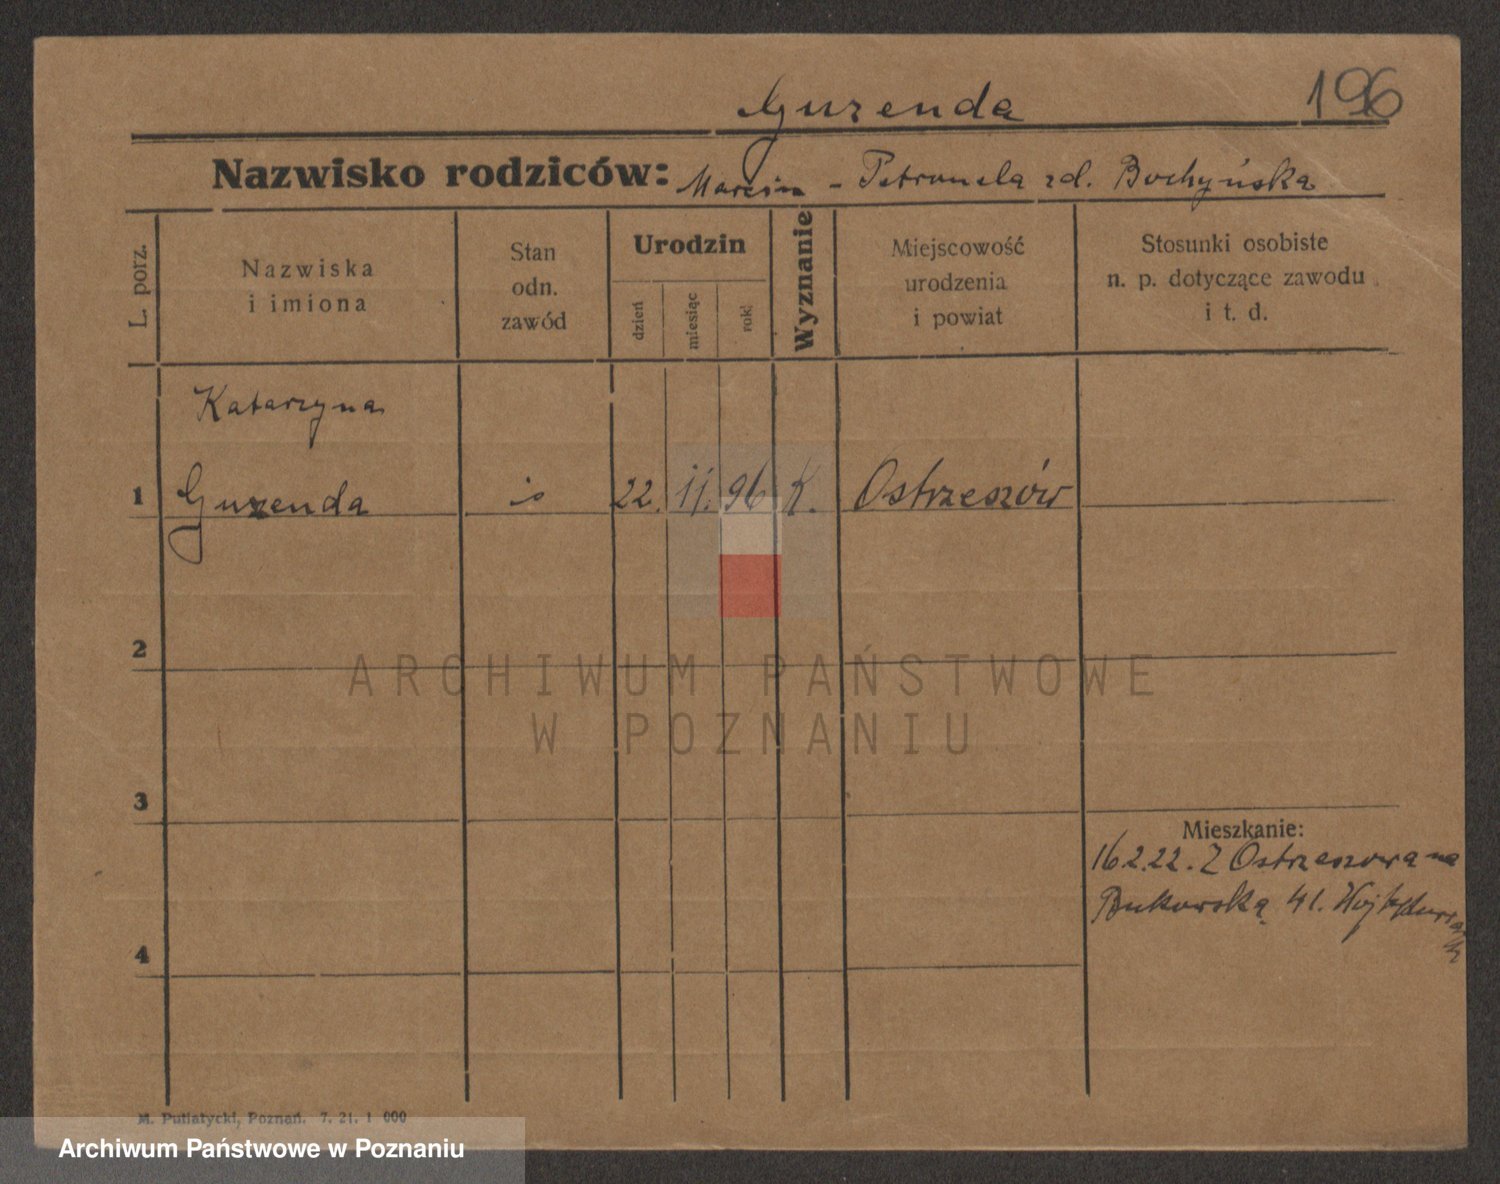 Guzenda 196
Nazwisko rodziców: Marcin - Petronela zd. Bochyńska
L. porz.
Nazwiska
i imiona
Stan
odn.
zawód
Urodzin
dzień
miesiąc
rok
Wyznanie
Miejscowość
urodzenia
i powiat
Stosunki osobiste
n. p. dotyczące zawodu
i t. d.
Katarzyna
1 Guzenda 22. 11. 96 K. Ostrzeszów
2
ARCHIWUM PAŃSTWOWE
W POZNANIU
3
Mieszkanie:
16.2.22. Z Ostrzeszowa na
Bukowską 41.
4
M. Putiatycki, Poznań. 7. 21. 1 000
Archiwum Państwowe w Poznaniu